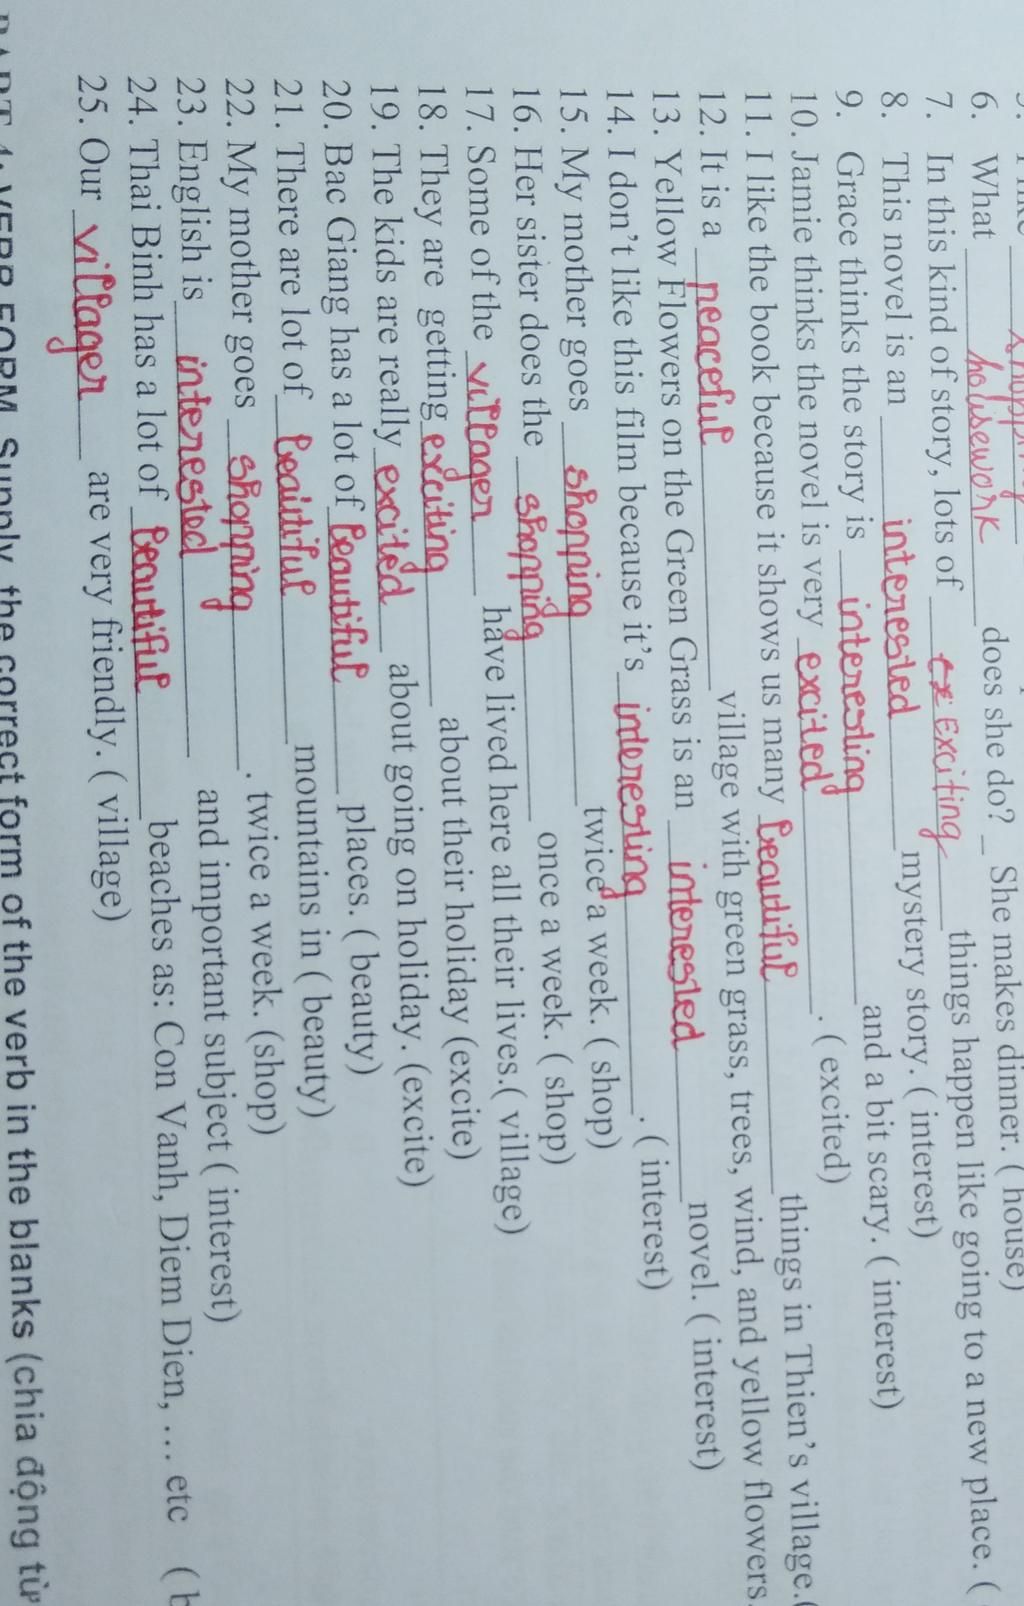 6. What housework does she do? _ She makes dinner. ( house)
7. In this kind of story, lots of ex Exciting things happen like going to a new place. (
8. This novel is an interested mystery story. ( interest)
9. Grace thinks the story is interesting and a bit scary. ( interest)
10. Jamie thinks the novel is very excited . ( excited)
11. I like the book because it shows us many beautiful things in Thien's village.(
12. It is a peaceful village with green grass, trees, wind, and yellow flowers.
13. Yellow Flowers on the Green Grass is an interested novel. ( interest)
14. I don't like this film because it's interesting . ( interest)
15. My mother goes shopping twice a week. ( shop)
16. Her sister does the shopping once a week. ( shop)
17. Some of the villager have lived here all their lives.( village)
18. They are getting exciting about their holiday (excite)
19. The kids are really excited about going on holiday. (excite)
20. Bac Giang has a lot of beautiful places. ( beauty)
21. There are lot of beaitiful mountains in ( beauty)
22. My mother goes shopping . twice a week. (shop)
23. English is interested and important subject ( interest)
24. Thai Binh has a lot of beautiful beaches as: Con Vanh, Diem Dien, ... etc ( b
25. Our villager are very friendly. ( village)
PART 4: VERB FORM Supply the correct form of the verb in the blanks (chia động từ